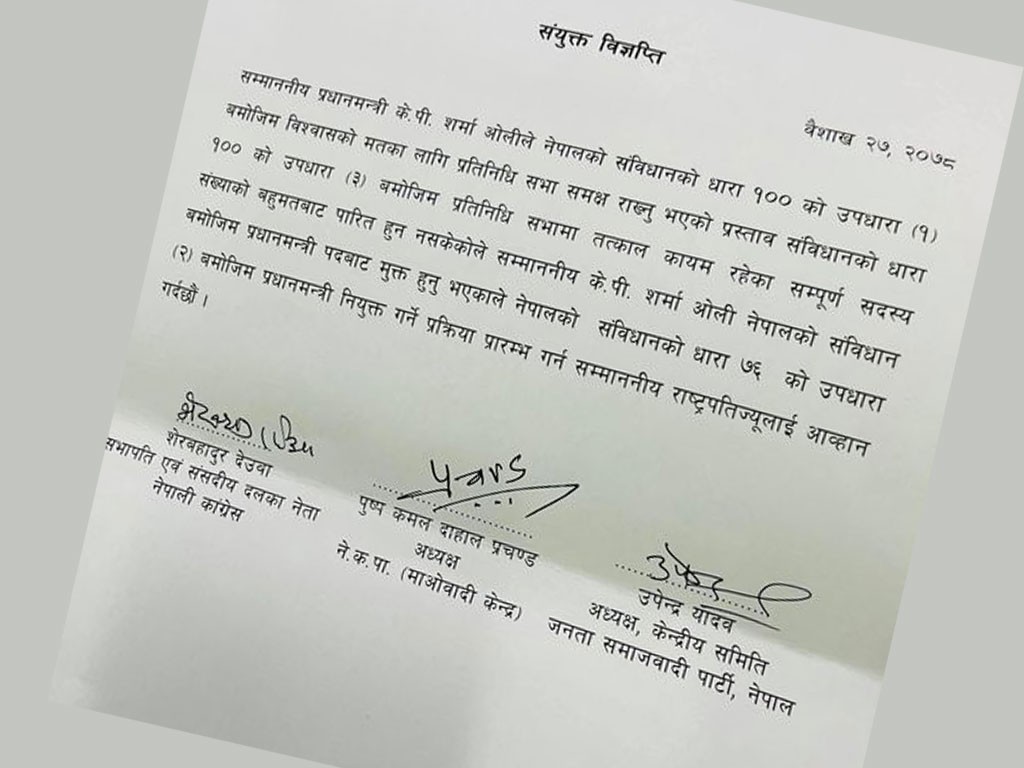 संयुक्त विज्ञप्ति
वैशाख २७, २०७८
सम्माननीय प्रधानमन्त्री के.पी. शर्मा ओलीले नेपालको संविधानको धारा १०० को उपधारा (१)
बमोजिम विश्वासको मतका लागि प्रतिनिधि सभा समक्ष राख्नु भएको प्रस्ताव संविधानको धारा
१०० को उपधारा (३) बमोजिम प्रतिनिधि सभामा तत्काल कायम रहेका सम्पूर्ण सदस्य
संख्याको बहुमतबाट पारित हुन नसकेकोले सम्माननीय के.पी. शर्मा ओली नेपालको संविधान
बमोजिम प्रधानमन्त्री पदबाट मुक्त हुनु भएकाले नेपालको संविधानको धारा ७६ को उपधारा
(२) बमोजिम प्रधानमन्त्री नियुक्त गर्ने प्रक्रिया प्रारम्भ गर्न सम्माननीय राष्ट्रपतिज्यूलाई आव्हान
गर्दछौं ।
शेरबहादुर देउवा
सभापति एवं संसदीय दलका नेता
नेपाली कांग्रेस
पुष्प कमल दाहाल प्रचण्ड
अध्यक्ष
ने.क.पा. (माओवादी केन्द्र)
उपेन्द्र यादव
अध्यक्ष, केन्द्रीय समिति
जनता समाजवादी पार्टी, नेपाल